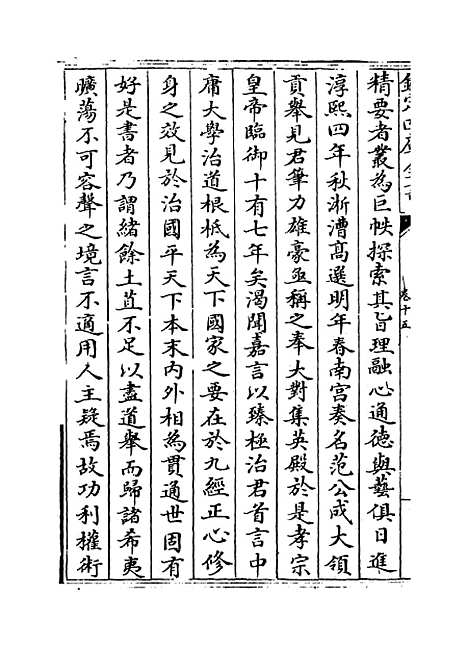 欽定四庫全書
卷十五
精要者叢為巨帙探索其旨理融心通德與藝俱日進
淳熙四年秋淅漕髙選明年春南宫奏名范公成大領
貢舉見君筆力雄豪亟稱之奉大對集英殿於是孝宗
皇帝臨御十有七年矣渴聞嘉言以臻極治君首言中
庸大學治道根柢為天下國家之要在於九經正心修
身之效見於治國平天下本末内外相為貫通世固有
好是書者乃謂緒餘土苴不足以盡道舉而歸諸希夷
曠蕩不可容聲之境言不適用人主疑焉故功利權術